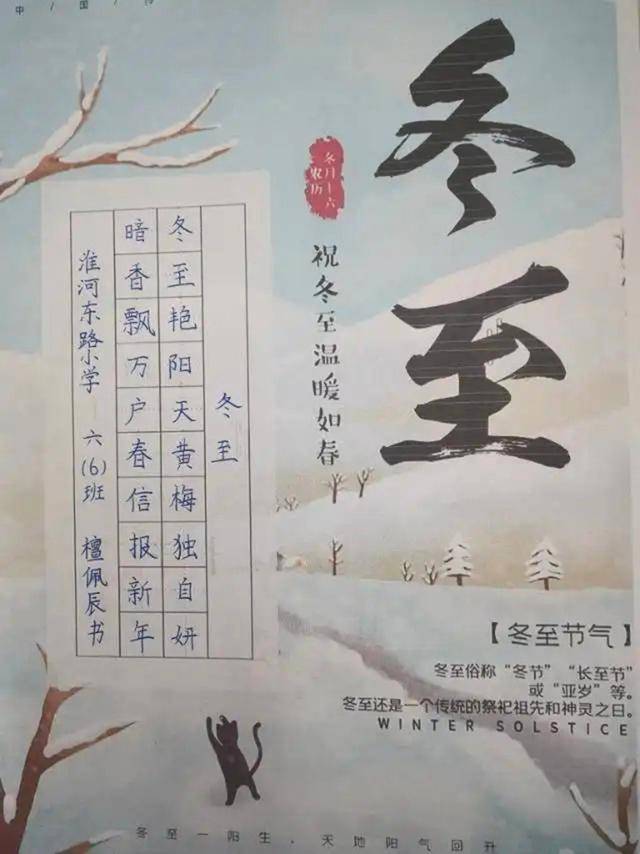 中/国/传
冬至
农历
冬月十六
祝冬至温暖如春
冬至
冬至艳阳天黄梅独自妍
暗香飘万户春信报新年
淮河东路小学 六(6)班 檀佩辰书
【冬至节气】
冬至俗称“冬节”“长至节”
或“亚岁”等。
冬至还是一个传统的祭祀祖先和神灵之日。
WINTER SOLSTICE
冬至一阳生，天地阳气回升